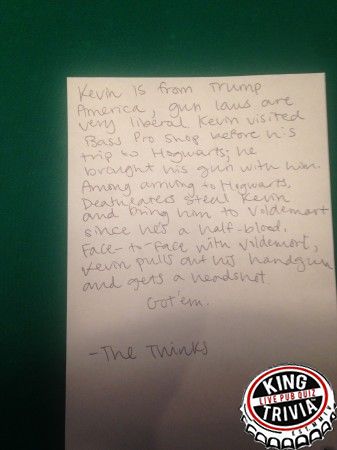 Kevin is from Trump
America, gun laws are
very liberal. Kevin visited
Bass Pro Shop before his
trip to Hogwarts; he
brought his gun with him.
Among arriving to Hogwarts,
Deatheaters steal Kevin
and bring him to Voldemort
since he's a half-blood.
Face-to-face with Voldemort,
Kevin pulls out his handgun
and gets a headshot.
Got 'em.
-The Thinks
KING
LIVE PUB QUIZ
TRIVIA